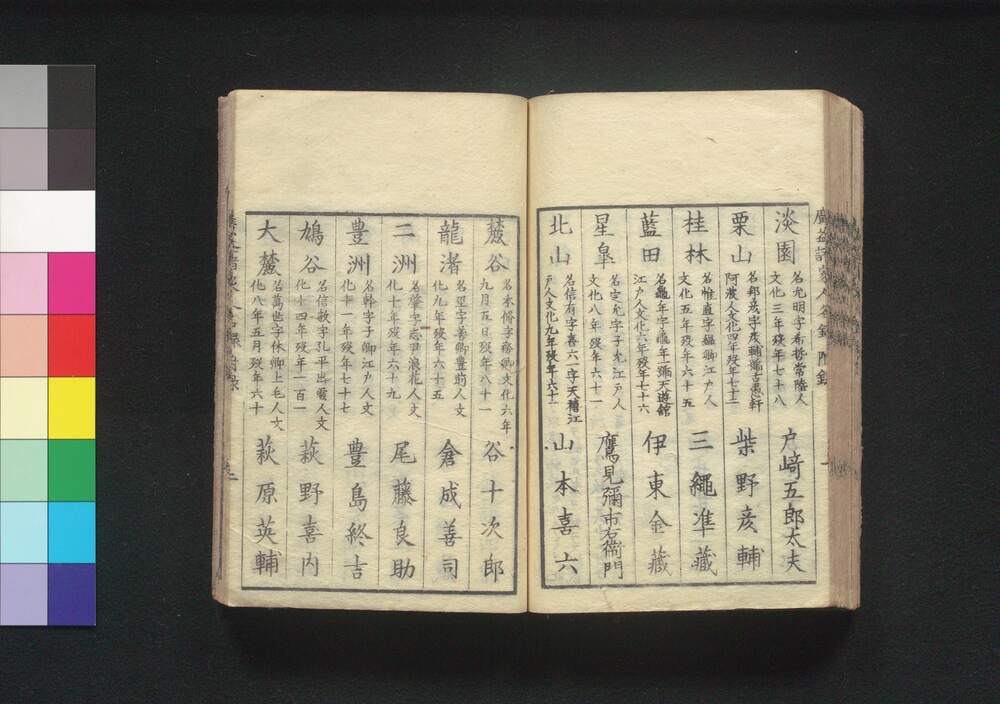 廣益諸家人名錄 附錄
淡園 名允明字希哲常陸人
文化三年歿年七十八 戸﨑五郎太夫
栗山 名邦彦字彦輔號古愚軒
阿波人文化四年歿年七十二 柴野彦輔
桂林 名惟直字繩卿江戸人
文化五年歿年六十五 三繩準藏
藍田 名龜年字龜年號天遊館
江戸人文化六年歿年七十六 伊東金藏
星皐 名定允字子允江戸人
文化八年歿年六十一 鷹見彌市右衞門
北山 名信有字喜六一字天禧江
戸人文化九年歿年六十一 山本喜六
麓谷 名本脩字務卿文化六年
九月五日歿年八十一 谷十次郎
龍渚 名巠字善卿豊前人文
化九年歿年六十五 倉成善司
二洲 名肇字志尹浪花人文
化十年歿年六十九 尾藤良助
豊洲 名幹字子卿江戸人文
化十一年歿年七十七 豊島終吉
鳩谷 名信敏字孔平出雲人文
化十四年歿年一百一 萩野喜内
大麓 名萬世字休卿上毛人文
化八年五月歿年六十 萩原英輔